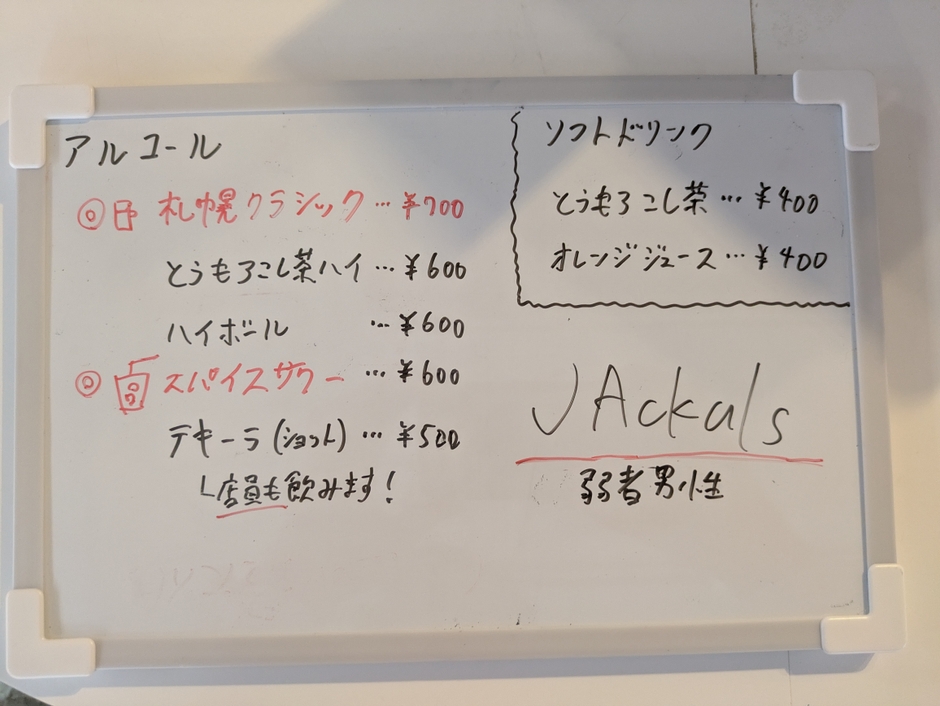 アルコール
◎ 札幌クラシック…¥700
とうもろこし茶ハイ…¥600
ハイボール …¥600
◎ スパイスサワー …¥600
テキーラ(ショット)…¥500
└店員も飲みます!
ソフトドリンク
とうもろこし茶…¥400
オレンジジュース…¥400
JAckals
弱者男性